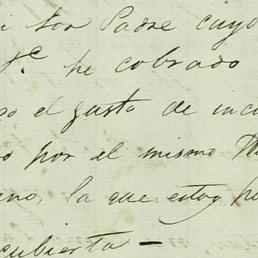 Sor Padre cuyo
he cobrado
el gusto de inc
por el mismo
la que estoy
cubierta —